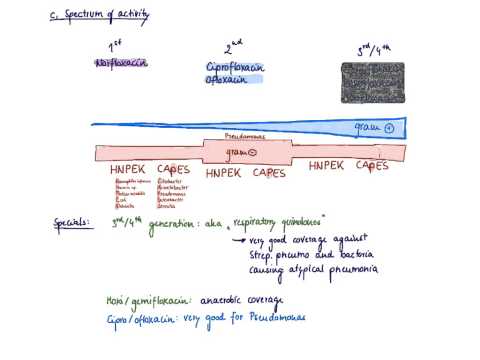 c. Spectrum of activity
1st 2nd 3rd/4th
Norfloxacin Ciprofloxacin
Ofloxacin
gram +
Pseudomonas
gram -
HNPEK CAPES HNPEK CAPES HNPEK CAPES
Proteus mirabilis Pseudomonas
E.coli Enterobacter
Klebsiella Serratia
Specials: 3rd/4th generation: aka "respiratory quinolones"
→ very good coverage against
Strep. pneumo and bacteria
causing atypical pneumonia
Moxi/gemifloxacin: anaerobic coverage
Cipro/ofloxacin: very good for Pseudomonas